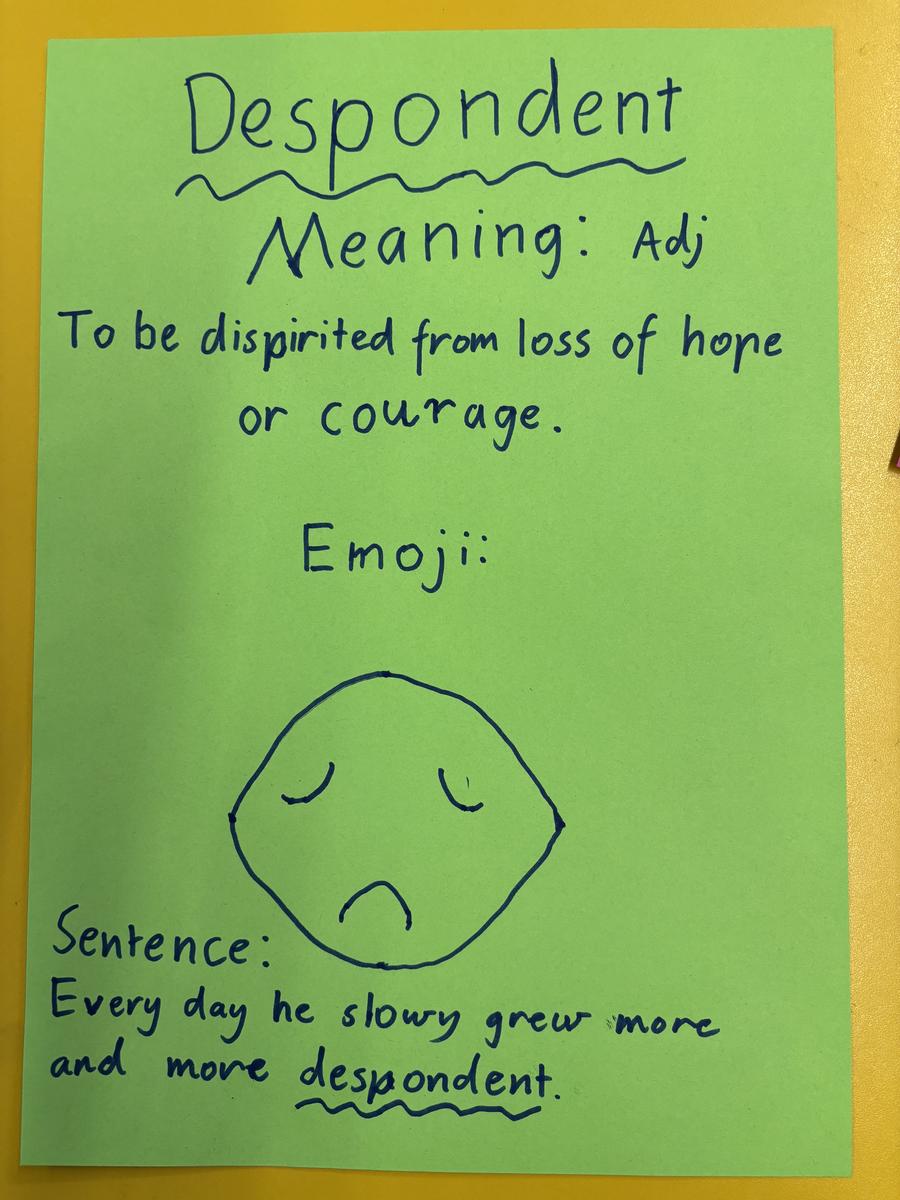 Despondent
Meaning: Adj
To be dispirited from loss of hope
or courage.
Emoji:
Sentence:
Every day he slowy grew more
and more despondent.